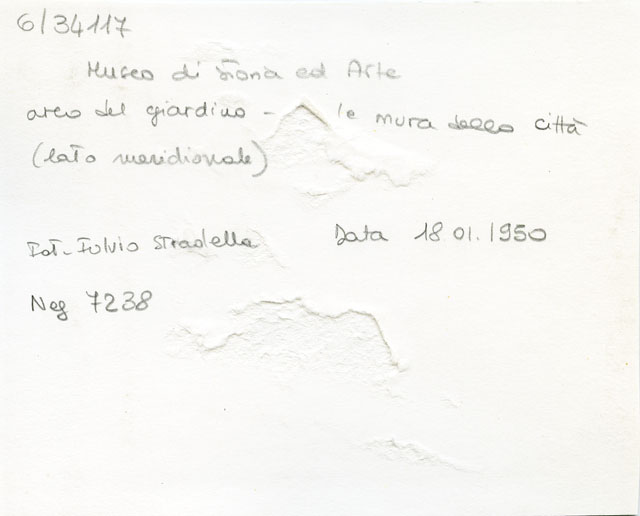 6/34117
Museo di Storia ed Arte
arco del giardino - le mura della città
(lato meridionale)
Fot. Fulvio Stradella Data 18.01.1950
Neg 7238